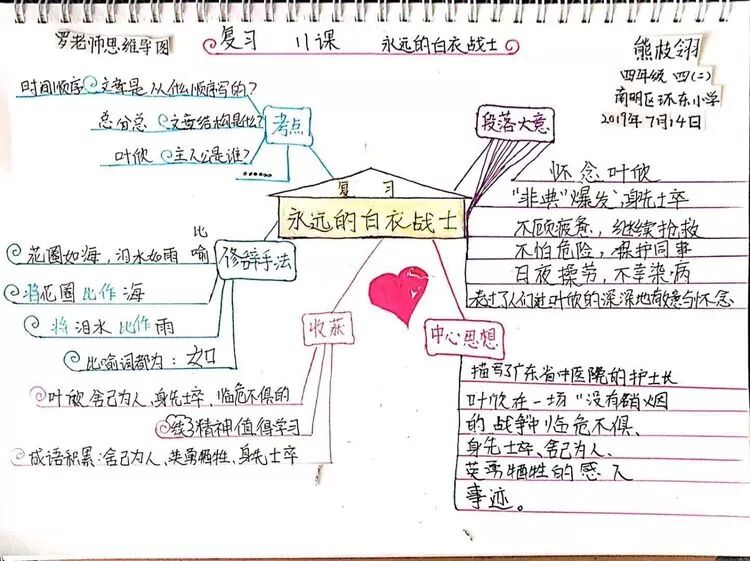 罗老师思维导图
复习 11课 永远的白衣战士
熊枝翎
四年级 四(二)
南明区环东小学
2019年7月14日
复习
永远的白衣战士
考点
时间顺序 文章是从什么顺序写的?
总分总 文章结构是什么?
叶欣 主人公是谁?
……
修辞手法
比喻
花圈如海,泪水如雨
将花圈比作海
将泪水比作雨
比喻词都为:如
收获
叶欣舍己为人,身先士卒,临危不惧的
精神值得学习
成语积累:舍己为人、英勇牺牲、身先士卒
段落大意
怀念叶欣
"非典"爆发,身先士卒
不顾疲惫,继续抢救
不怕危险,保护同事
日夜操劳,不幸染病
表达了人们对叶欣的深深地敬意与怀念
中心思想
描写了广东省中医院的护士长
叶欣在一场"没有硝烟
的战争中临危不惧、
身先士卒、舍己为人、
英勇牺牲的感人
事迹。